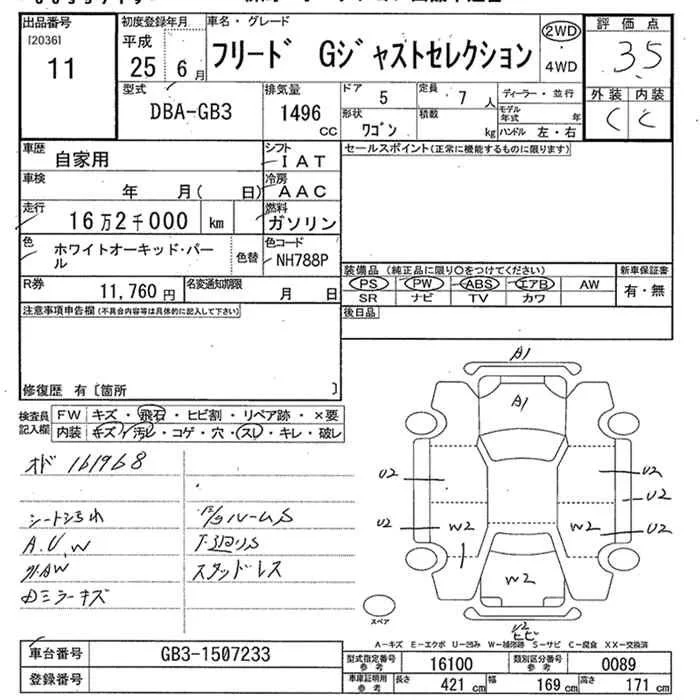 出品番号 初度登録年月 車名・グレード 評価点
[2036]
11
平成
25 6月
フリード Gジャストセレクション
2WD
・
4WD
3.5
型式 排気量 ドア 定員 ディーラー・並行 外装 内装
DBA-GB3 1496 CC 5 7人
形状 積載 モデル年式 年
ワゴン kg ハンドル 左・右
C C
車歴 自家用 シフト IAT
セールスポイント(正常に機能するものに限ります)
車検 年 月( 日) 冷房 AAC
走行 16万2千000 km 燃料 ガソリン
色 ホワイトオーキッド・パール 色替 色コード NH788P
R券 11,760円 名変通知期限 月 日
装備品(純正品に限り○をつけてください) 新車保証書
PS PW ABS エアB AW 有・無
SR ナビ TV カワ
注意事項申告欄(不具合内容等は具体的に記入して下さい)
後日品
修復歴 有〔箇所 〕
検査員記入欄
FW キズ・飛石・ヒビ割・リペア跡・×要
内装 キズ・汚レ・コゲ・穴・スレ・キレ・破レ
オド 161968
シートよごれ
A.U.W
内ルームS
下廻りS
スタッドレス
ミラーキズ
A1
A1
U2
U2
U2
U2
W2
W2
U2
W2
U2
ヒビ
スペア
A-キズ E-エクボ U-凹み W-補修跡 S-サビ C-腐食 XX-交換済
車台番号 GB3-1507233
型式指定番号参考 16100 類別区分番号参考 0089
登録番号
車庫証明用参考 長さ 421cm 幅 169cm 高さ 171cm